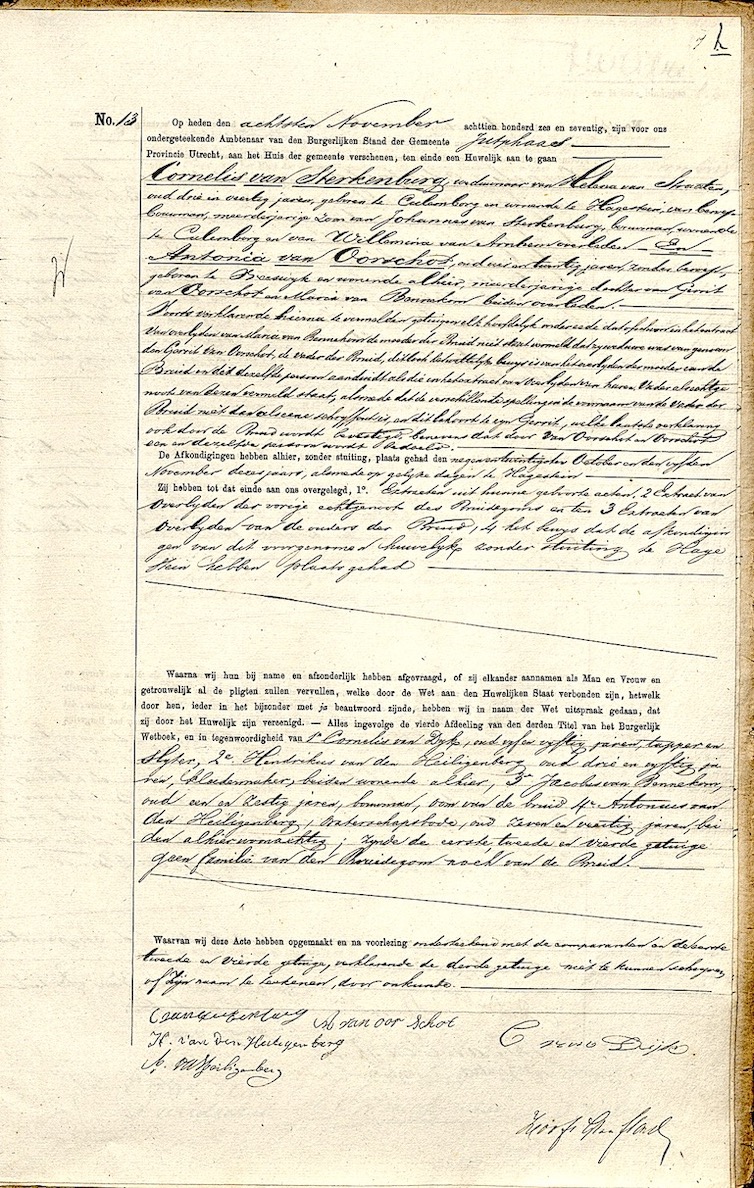 h
No. 13
Op heden den achtsten November achttien honderd zes en seventig, zijn voor ons
ondergeteekende Ambtenaar van den Burgerlijken Stand der Gemeente Jutphaas
Provincie Utrecht, aan het Huis der gemeente verschenen, ten einde een Huwelijk aan te gaan
Cornelis van Sterkenburg, weduwnaar van Helena van Straaten,
oud drie en veertig jaren, geboren te Culemborg en wonende te Hagestein, van beroep
bouwman, meerderjarige zoon van Johannes van Sterkenburg, bouwman, wonende
te Culemborg en van Willemina van Arnhem overleden. En
Antonia van Oorschot, oud en twintig jaren, zonder beroep,
geboren te en wonende alhier, meerderjarige dochter van Gerrit
van Oorschot en Maria van Bennekom beiden overleden.
Voorts verklarende hierna te vermelden getuigen elk hoofdelijk onder eede dat ofschoon in het extract
van overlyden van Maria van Bennekom de moeder der Bruid niet staat vermeld dat zy weduwe was van genoem
den Gerrit van Oorschot, de vader der Bruid, dit toch het wettelyke bewys is van het overlyden der moeder van de
Bruid en dit dezelfde persoon aanduidt als die in het extract van overlyden van haren Vader als echtge
noot van dezen vermeld staat, alsmede dat de verschillende spelling in de voornaam van de Vader der
Bruid niet dan eene schryffout is, en dit behoort te zyn Gerrit, welke laatste verklaring
ook door de Bruid wordt bevestigd, benevens dat door Van Oorschot en Oorschot
een en dezelfde persoon wordt bedoeld.
De Afkondigingen hebben alhier, zonder stuiting, plaats gehad den negenentwintigsten October en den vyfden
November dezes jaars, alsmede op gelyke dagen te Hagestein
Zij hebben tot dat einde aan ons overgelegd, 1°. Extracten uit hunne geboorte acten, 2 Extract van
overlyden der vorige echtgenoot des Bruidegoms en ten 3 Extracten van
overlyden van de ouders der Bruid, 4 het bewys dat de afkondigin
gen van dit voorgenomen huwelyk zonder stuiting te Hage
stein hebben plaats gehad
Waarna wij hun bij name en afzonderlijk hebben afgevraagd, of zij elkander aannamen als Man en Vrouw en
getrouwelijk al de pligten zullen vervullen, welke door de Wet aan den Huwelijken Staat verbonden zijn, hetwelk
door hen, ieder in het bijzonder met ja beantwoord zijnde, hebben wij in naam der Wet uitspraak gedaan, dat
zij door het Huwelijk zijn vereenigd. — Alles ingevolge de vierde Afdeeling van den derden Titel van het Burgerlijk
Wetboek, en in tegenwoordigheid van 1e Cornelis van Dyk, oud vyf en vyftig jaren, tapper en
slyter, 2e Hendrikus van den Heiligenberg oud drie en vyftig ja
ren, kleedermaker, beiden wonende alhier, 3e Jacobus van Bennekom,
oud een en zestig jaren, bouwman, oom van de bruid 4e Antonius van
den Heiligenberg, Waterschapsbode, oud zeven en veertig jaren, bei
den alhier woonachtig; zynde de eerste, tweede en vierde getuige
geen familie van den Bruidegom noch van de Bruid.
Waarvan wij deze Acte hebben opgemaakt en na voorlezing onderteekend met de comparanten en de eerste
tweede en vierde getuige, verklarende de derde getuige niet te kunnen schryven
of zyn naam te teekenen, door onkunde.
C van Sterkenburg A van oor Schot
H. van den Heiligenberg C van Dijk.
A. vd Heiligenberg